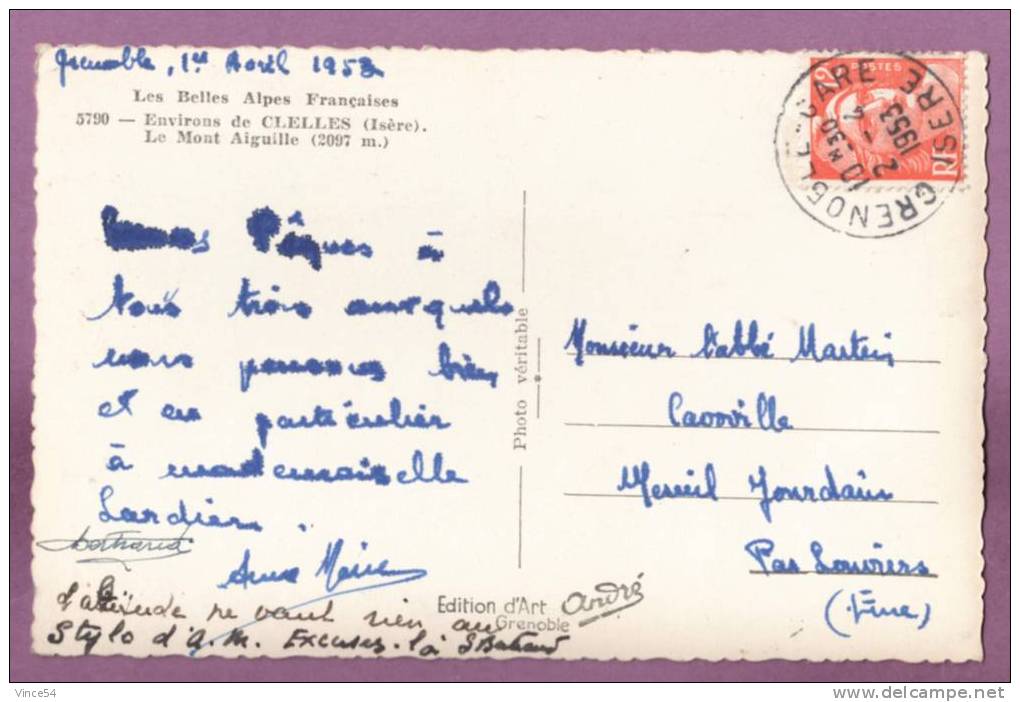 Grenoble, 1er Avril 1953
Les Belles Alpes Françaises
5790 — Environs de CLELLES (Isère).
Le Mont Aiguille (2097 m.)
POSTES
12
RF
GRENOBLE-GARE
10 H 30
2 - 4
1953
ISERE
Pâques à
tous trois auxquels
nous pensons bien
et en particulier
à mademoiselle
Lardier.
Bertrand
Anne Marie
L'altitude ne vaut rien au
Stylo d'A.M. Excusez-là
Photo véritable
Edition d'Art André
Grenoble
Monsieur l'abbé Martin
Mesnil Jourdain
Par Louviers
(Eure)
Vince54
www.delcampe.net